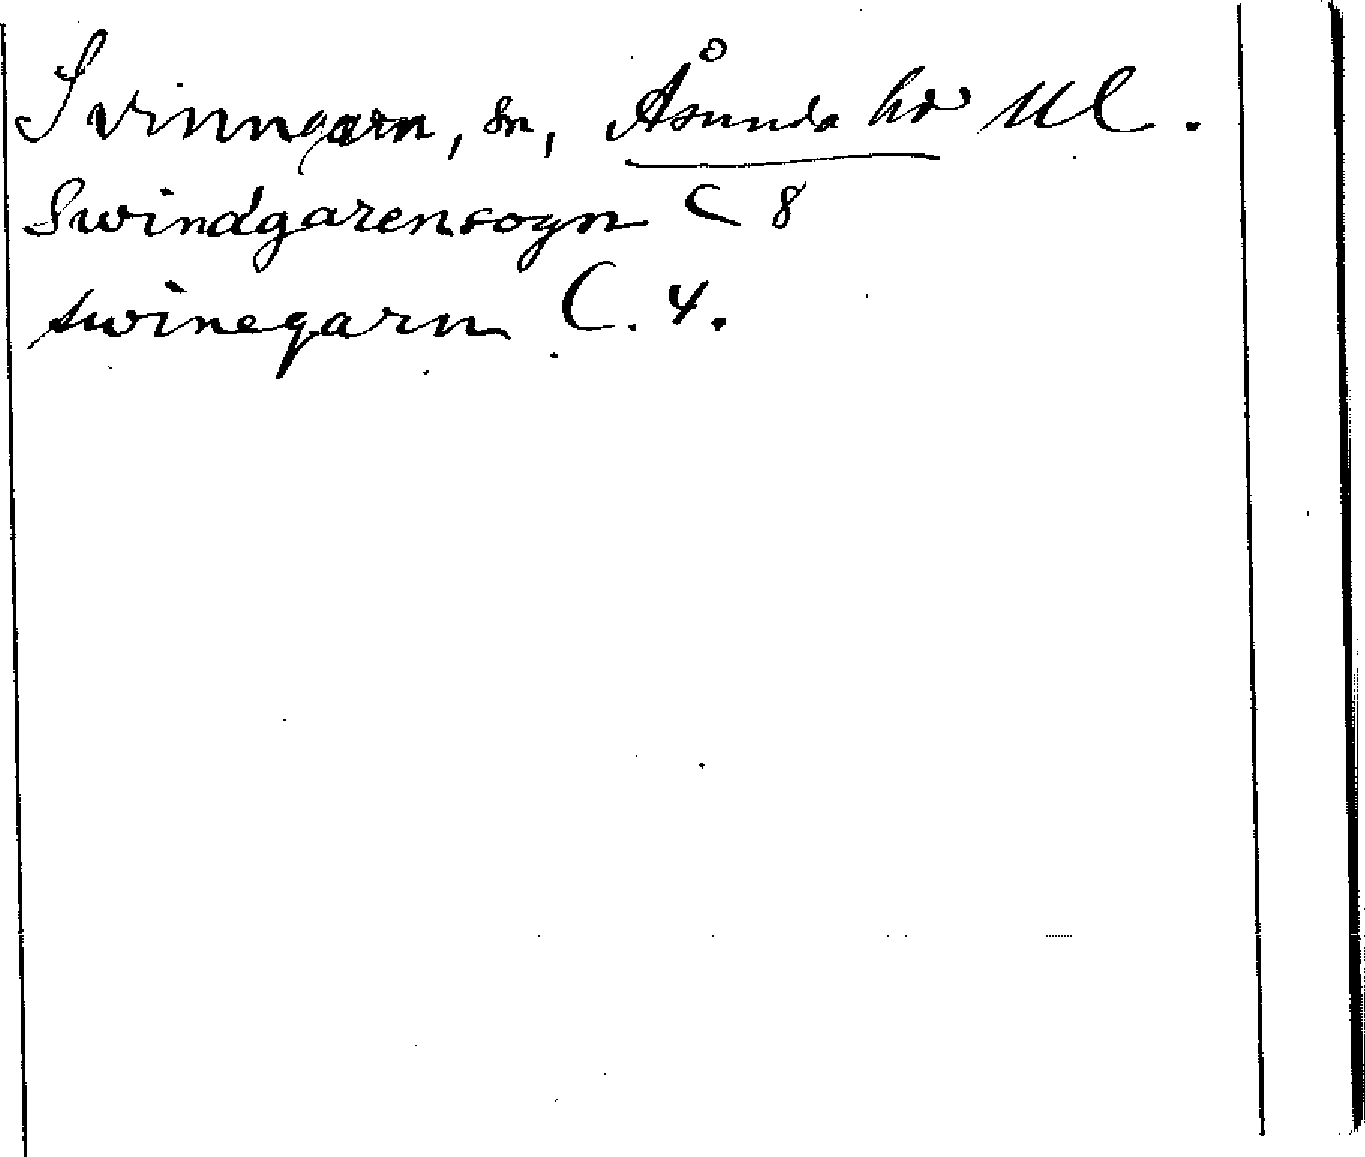 Svinngarn, sn, Åsunda hd Ul.
Swindgarensogn C 8
swinegarn C. 4.